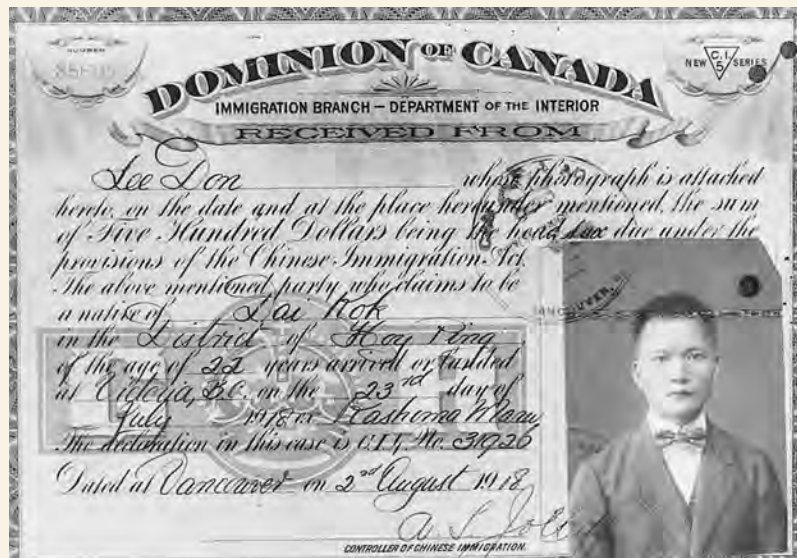 NUMBER
DOMINION OF CANADA
NEW C.I. 5 SERIES
IMMIGRATION BRANCH — DEPARTMENT OF THE INTERIOR
RECEIVED FROM
Lee Don whose photograph is attached
hereto, on the date and at the place hereunder mentioned, the sum
of Five Hundred Dollars being the head tax due under the
provisions of the Chinese Immigration Act.
The above mentioned party who claims to be
a native of Dai Kok
in the District of Hoy Ping
of the age of 22 years arrived or landed
at Victoria, B.C. on the 23rd day of
July 1918 Kashima Maru
The declaration in this case is C.I.4, No. 31926
Dated at Vancouver on 2nd August 1918
CONTROLLER OF CHINESE IMMIGRATION.
VANCOUVER,